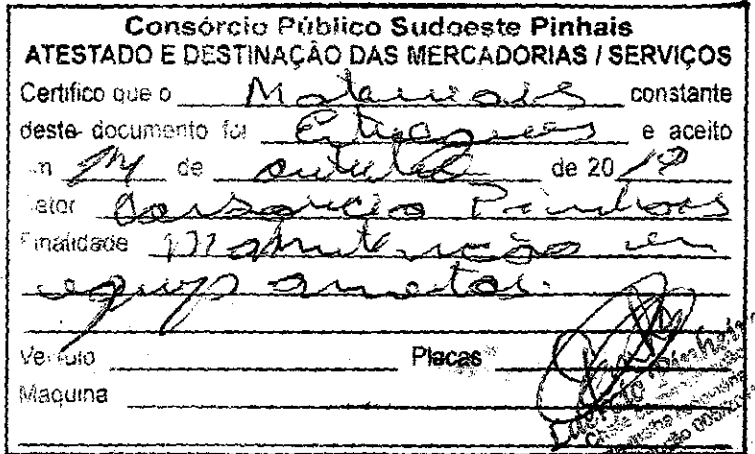 Consórcio Público Sudoeste Pinhais
ATESTADO E DESTINAÇÃO DAS MERCADORIAS / SERVIÇOS
Certifico que o Materiais constante
deste documento foi Entregues e aceito
em de outubro de 20 19
Setor Consorcio Pinhais
Finalidade Manutenção em
equipamentos.
Veículo Placas
Maquina
Pinheiro